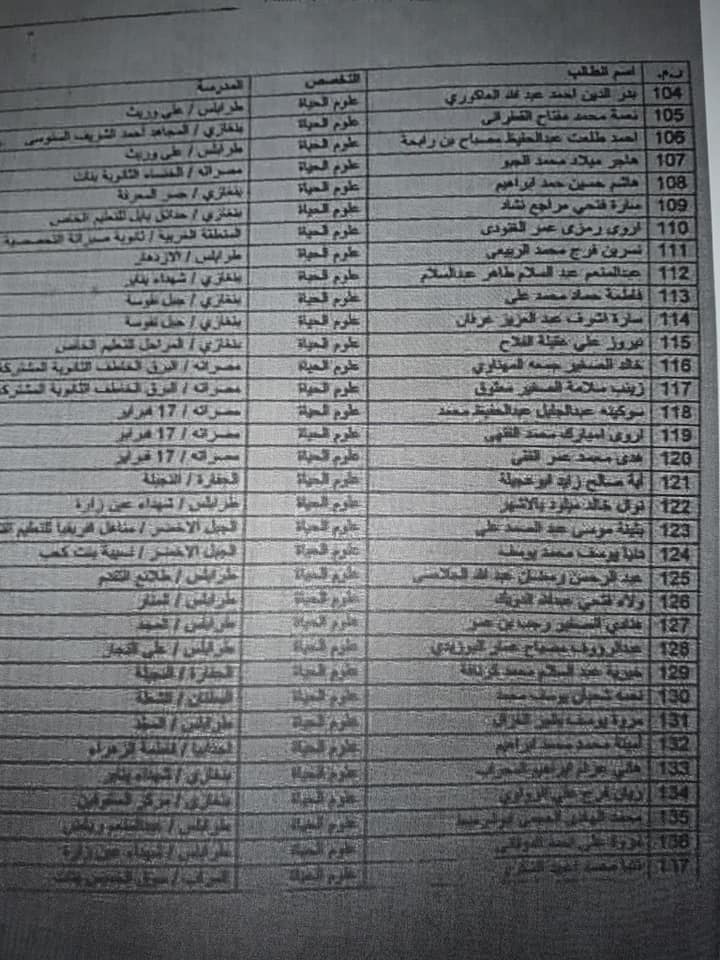 ر.م. اسم الطالب التخصص المدرسة
104 بدر الدين احمد عبد الله الماكوري علوم الحياة طرابلس / علي وريث
105 نعمة محمد مفتاح القطراني علوم الحياة بنغازي / المجاهد أحمد الشريف السنوسي
106 احمد طلعت عبدالحفيظ مصباح بن رابحة علوم الحياة طرابلس / علي وريث
107 هاجر ميلاد محمد الجبو علوم الحياة مصراته / الخنساء الثانوية بنات
108 هاشم حسين حمد ابراهيم علوم الحياة بنغازي / جسر المعرفة
109 سارة فتحي مراجع نشاد علوم الحياة بنغازي / حدائق بابل للتعليم الخاص
110 اروى رمزى عمر الفنودى علوم الحياة المنطقة الغربية / ثانوية صبراتة التخصصية
111 نسرين فرج محمد الربيعي علوم الحياة طرابلس / الازدهار
112 عبدالمنعم عبد السلام طاهر عبدالسلام علوم الحياة بنغازي / شهداء يناير
113 فاطمة حماد محمد على علوم الحياة بنغازي / جبل نفوسة
114 سارة اشرف عبد العزيز عرفان علوم الحياة بنغازي / جبل نفوسة
115 نيروز علي عقيلة الفلاح علوم الحياة بنغازي / المراحل التعليم الخاص
116 خالد الصغير جمعه المهناوي علوم الحياة مصراته / البرق الخاطف الثانوية المشتركة
117 زينب سلامة الصغير معتوق علوم الحياة مصراته / البرق الخاطف الثانوية المشتركة
118 سوكينه عبدالجليل عبدالحفيظ محمد علوم الحياة مصراته / 17 فبراير
119 اروى امبارك محمد الفقهي علوم الحياة مصراته / 17 فبراير
120 هدى محمد عمر الفقي علوم الحياة مصراته / 17 فبراير
121 آية صالح زايد ابوعجيلة علوم الحياة الجفارة / النجيلة
122 نوران خالد ميلود بالاشهر علوم الحياة طرابلس / شهداء عين زارة
123 بثينة موسى عبد الصمد على علوم الحياة الجبل الاخضر / مناهل افريقيا للتعليم
124 دانيا يوسف محمد يوسف علوم الحياة الجبل الاخضر / نسيبة بنت كعب
125 عبد الرحمن رمضان عبد الله الجلاصي علوم الحياة طرابلس / طلائع التقدم
126 ولاء فتحي عبدالله الدويك علوم الحياة طرابلس / المنار
127 هنادي الصغير رجب بن عمر علوم الحياة طرابلس / المجد
128 عبدالرؤوف مصباح عمار البوزيدي علوم الحياة طرابلس / علي النجار
129 خيرية عبد السلام محمد علوم الحياة الجفارة / النجيلة
130 نعمه شعبان يوسف محمد علوم الحياة
131 مروة يوسف بشير الغزال علوم الحياة طرابلس / المجد
132 أمينة محمد محمد ابراهيم علوم الحياة / فاطمة الزهراء
133 هاني عزام ابراهيم علوم الحياة بنغازي / شهداء يناير
134 فرج علي علوم الحياة بنغازي / مركز المتفوقين
135 محمد الهادي علوم الحياة طرابلس /
136 مروة علي علوم الحياة طرابلس / شهداء عين زارة
137 محمد علوم الحياة